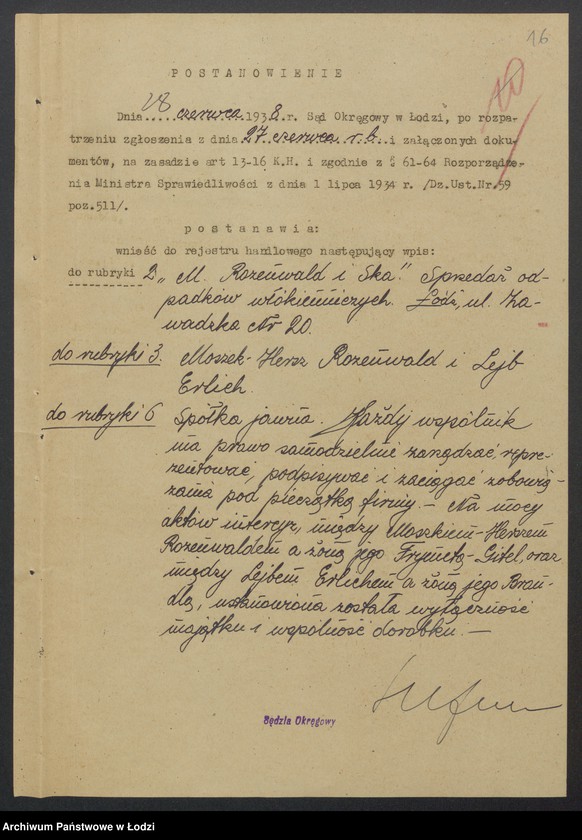 16
POSTANOWIENIE
Dnia 28 czerwca 1938.r. Sąd Okręgowy w Łodzi, po rozpa-
trzeniu zgłoszenia z dnia 27 czerwca r.b. i załączonych doku-
mentów, na zasadzie art 13-16 K.H. i zgodnie z § 61-64 Rozporządze-
nia Ministra Sprawiedliwości z dnia 1 lipca 1934 r. /Dz.Ust.Nr.59
poz.511/.
postanawia:
wnieść do rejestru handlowego następujący wpis:
do rubryki 2 „M. Rozenwald i Ska". Sprzedaż od-
padków włókienniczych. Łódź, ul. Za-
wadzka Nr 20.
do rubryki 3. Moszek-Hersz Rozenwald i Lejb
Erlich.
do rubryki 6 Spółka jawna. Każdy wspólnik
ma prawo samodzielnie zarządzać, repre-
zentować, podpisywać i zaciągać zobowią-
zania pod pieczątką firmy. - Na mocy
aktów intercyz, między Moszkiem-Herszem
Rozenwaldem a żoną jego Frymetą-Gitel, oraz
między Lejbem Erlichem a żoną jego Bran-
dlą, ustanowiona została wyłączność
majątku i wspólność dorobku. -
Sędzia Okręgowy
Archiwum Państwowe w Łodzi